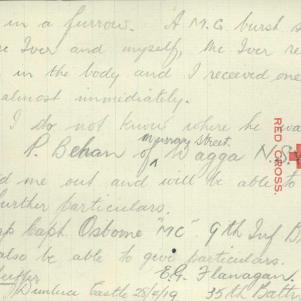 in a furrow. A M.G. burst s
c Iver and myself, Mc Iver re
in the body and I received one
almost immidiately.
I do not know where he was
P. Behan of Gurwood Street. Wagga N.S.W
d me out and will be able to
further particulars.
Capt. Osborne "MC" 9th Inf B
also be able to give particulars.
E.G. Flanagan.
Dunluce Castle 25/5/19 35th Batt
RED CROSS.